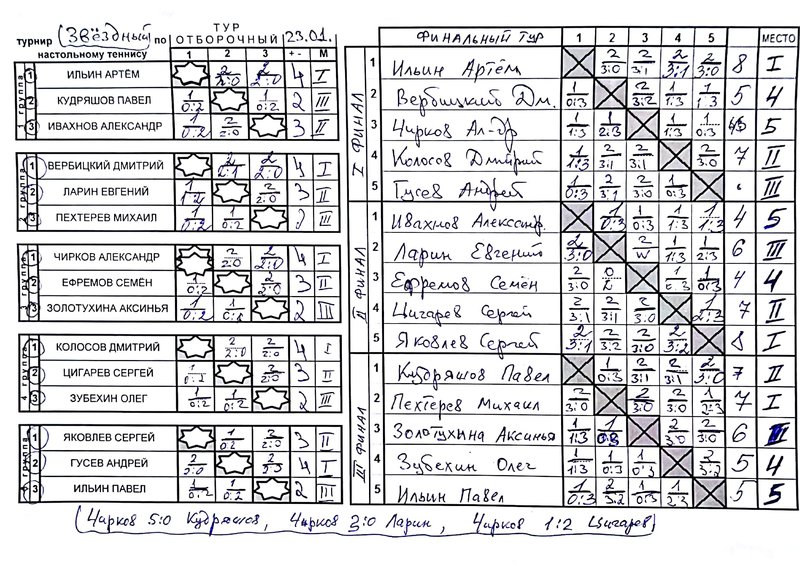 турнир (Звёздный) по настольному теннису
ТУР ОТБОРОЧНЫЙ 23.01.
1 2 3 + - М
1 группа
1 ИЛЬИН АРТЁМ 2 2:0 2 2:0 4 I
2 КУДРЯШОВ ПАВЕЛ 1 0:2 1 0:2 2 III
3 ИВАХНОВ АЛЕКСАНДР 1 0:2 2 2:0 3 II
2 группа
1 ВЕРБИЦКИЙ ДМИТРИЙ 2 2:1 2 2:0 4 I
2 ЛАРИН ЕВГЕНИЙ 1 1:2 2 2:0 3 II
3 ПЕХТЕРЕВ МИХАИЛ 1 0:2 1 0:2 2 III
3 группа
1 ЧИРКОВ АЛЕКСАНДР 2 2:0 2 2:0 4 I
2 ЕФРЕМОВ СЕМЁН 1 0:2 2 2:0 3 II
3 ЗОЛОТУХИНА АКСИНЬЯ 1 0:2 1 0:2 2 III
4 группа
1 КОЛОСОВ ДМИТРИЙ 2 2:0 2 2:0 4 I
2 ЦИГАРЕВ СЕРГЕЙ 1 0:2 2 2:0 3 II
3 ЗУБЕХИН ОЛЕГ 1 0:2 1 0:2 2 III
1 ЯКОВЛЕВ СЕРГЕЙ 1 2 2:0 3 II
2 ГУСЕВ АНДРЕЙ 2 2 4 I
3 ИЛЬИН ПАВЕЛ 1 0:2 1 0:2 2 III
ФИНАЛЬНЫЙ ТУР 1 2 3 4 5 МЕСТО
I ФИНАЛ
1 Ильин Артём 2 3:0 2 3:1 2 3:1 2 3:0 8 I
2 Вербицкий Дм. 1 0:3 2 3:2 1 1:3 1 1:3 5 4
3 Чирков Ал-др 1 1:3 1 2:3 1 1:3 1 0:3 5
4 Колосов Дмитрий 1 1:3 2 3:1 2 3:1 2 3:0 7 II
5 Гусев Андрей 1 0:3 2 3:1 2 3:0 1 0:3 III
II ФИНАЛ
1 Ивахнов Александр. 1 0:3 1 0:3 1 1:3 1 1:3 4 5
2 Ларин Евгений 2 3:0 2 W 1 1:3 1 2:3 6 III
3 Ефремов Семён 2 3:0 0 L 1 0:3 1 0:3 4 4
4 Цигарев Сергей 2 3:1 2 3:1 2 3:0 1 2:3 7 II
5 Яковлев Сергей 2 3:1 2 3:2 2 3:0 2 3:2 8 I
III ФИНАЛ
1 Кудряшов Павел 1 0:3 2 3:1 2 3:1 2 3:0 7 II
2 Пехтерев Михаил 2 3:0 2 3:0 2 3:0 1 2:3 7 I
3 Золотухина Аксинья 1 1:3 1 0:3 2 3:0 2 3:0 6 III
4 Зубехин Олег 1 1:3 1 0:3 1 0:3 2 3:2 5 4
5 Ильин Павел 1 0:3 2 3:2 1 0:3 1 2:3 5 5
(Чирков 5:0 Кудряшов, Чирков 3:0 Ларин, Чирков 1:2 Цигарев)